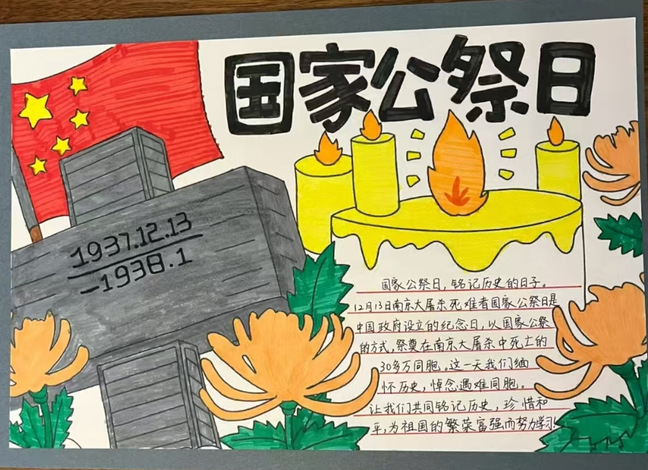 国家公祭日
1937.12.13
—1938.1
国家公祭日,铭记历史的日子。
12月13日南京大屠杀死难者国家公祭日是
中国政府设立的纪念日,以国家公祭
的方式,祭奠在南京大屠杀中死亡的
30多万同胞,这一天我们缅
怀历史,悼念遇难同胞。
让我们共同铭记历史,珍惜和
平,为祖国的繁荣富强而努力学习